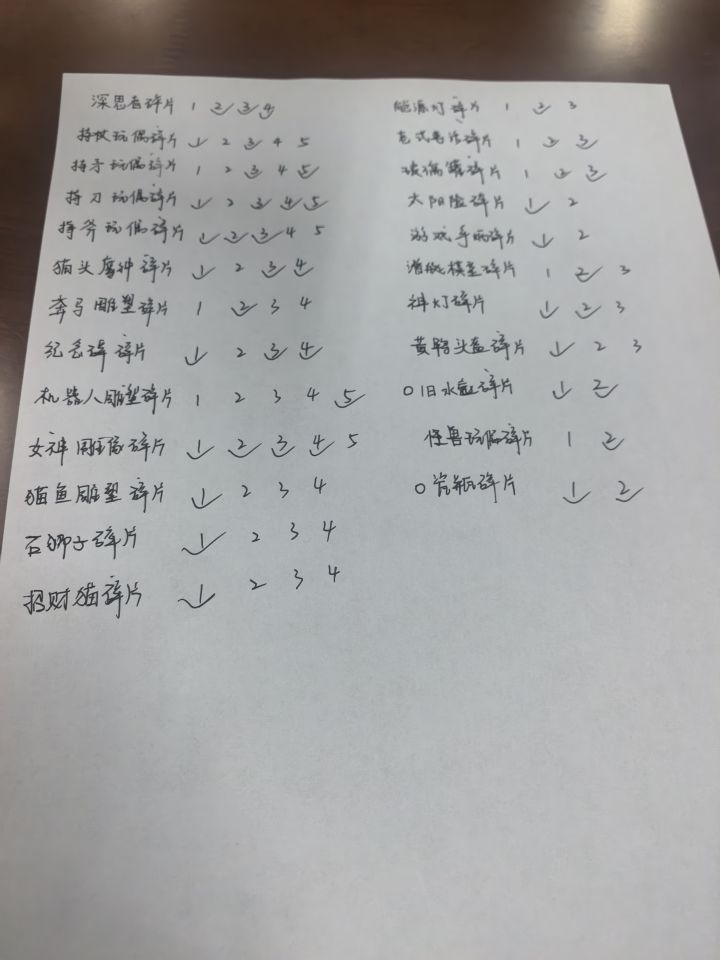 深思者碎片 1 2 3 4
持杖玩偶碎片 1 2 3 4 5
持矛玩偶碎片 1 2 3 4 5
持刀玩偶碎片 1 2 3 4 5
持斧玩偶碎片 1 2 3 4 5
猫头鹰钟碎片 1 2 3 4
奔马雕塑碎片 1 2 3 4
纪念碑碎片 1 2 3 4
机器人雕塑碎片 1 2 3 4 5
女神雕像碎片 1 2 3 4 5
猫鱼雕塑碎片 1 2 3 4
石狮子碎片 1 2 3 4
招财猫碎片 1 2 3 4
能源灯碎片 1 2 3
老式电话碎片 1 2 3
玻璃罐碎片 1 2 3
太阳脸碎片 1 2
游戏手柄碎片 1 2
潜艇模型碎片 1 2 3
神灯碎片 1 2 3
黄铜头盔碎片 1 2 3
旧水壶碎片 1 2
怪兽玩偶碎片 1 2
瓷瓶碎片 1 2